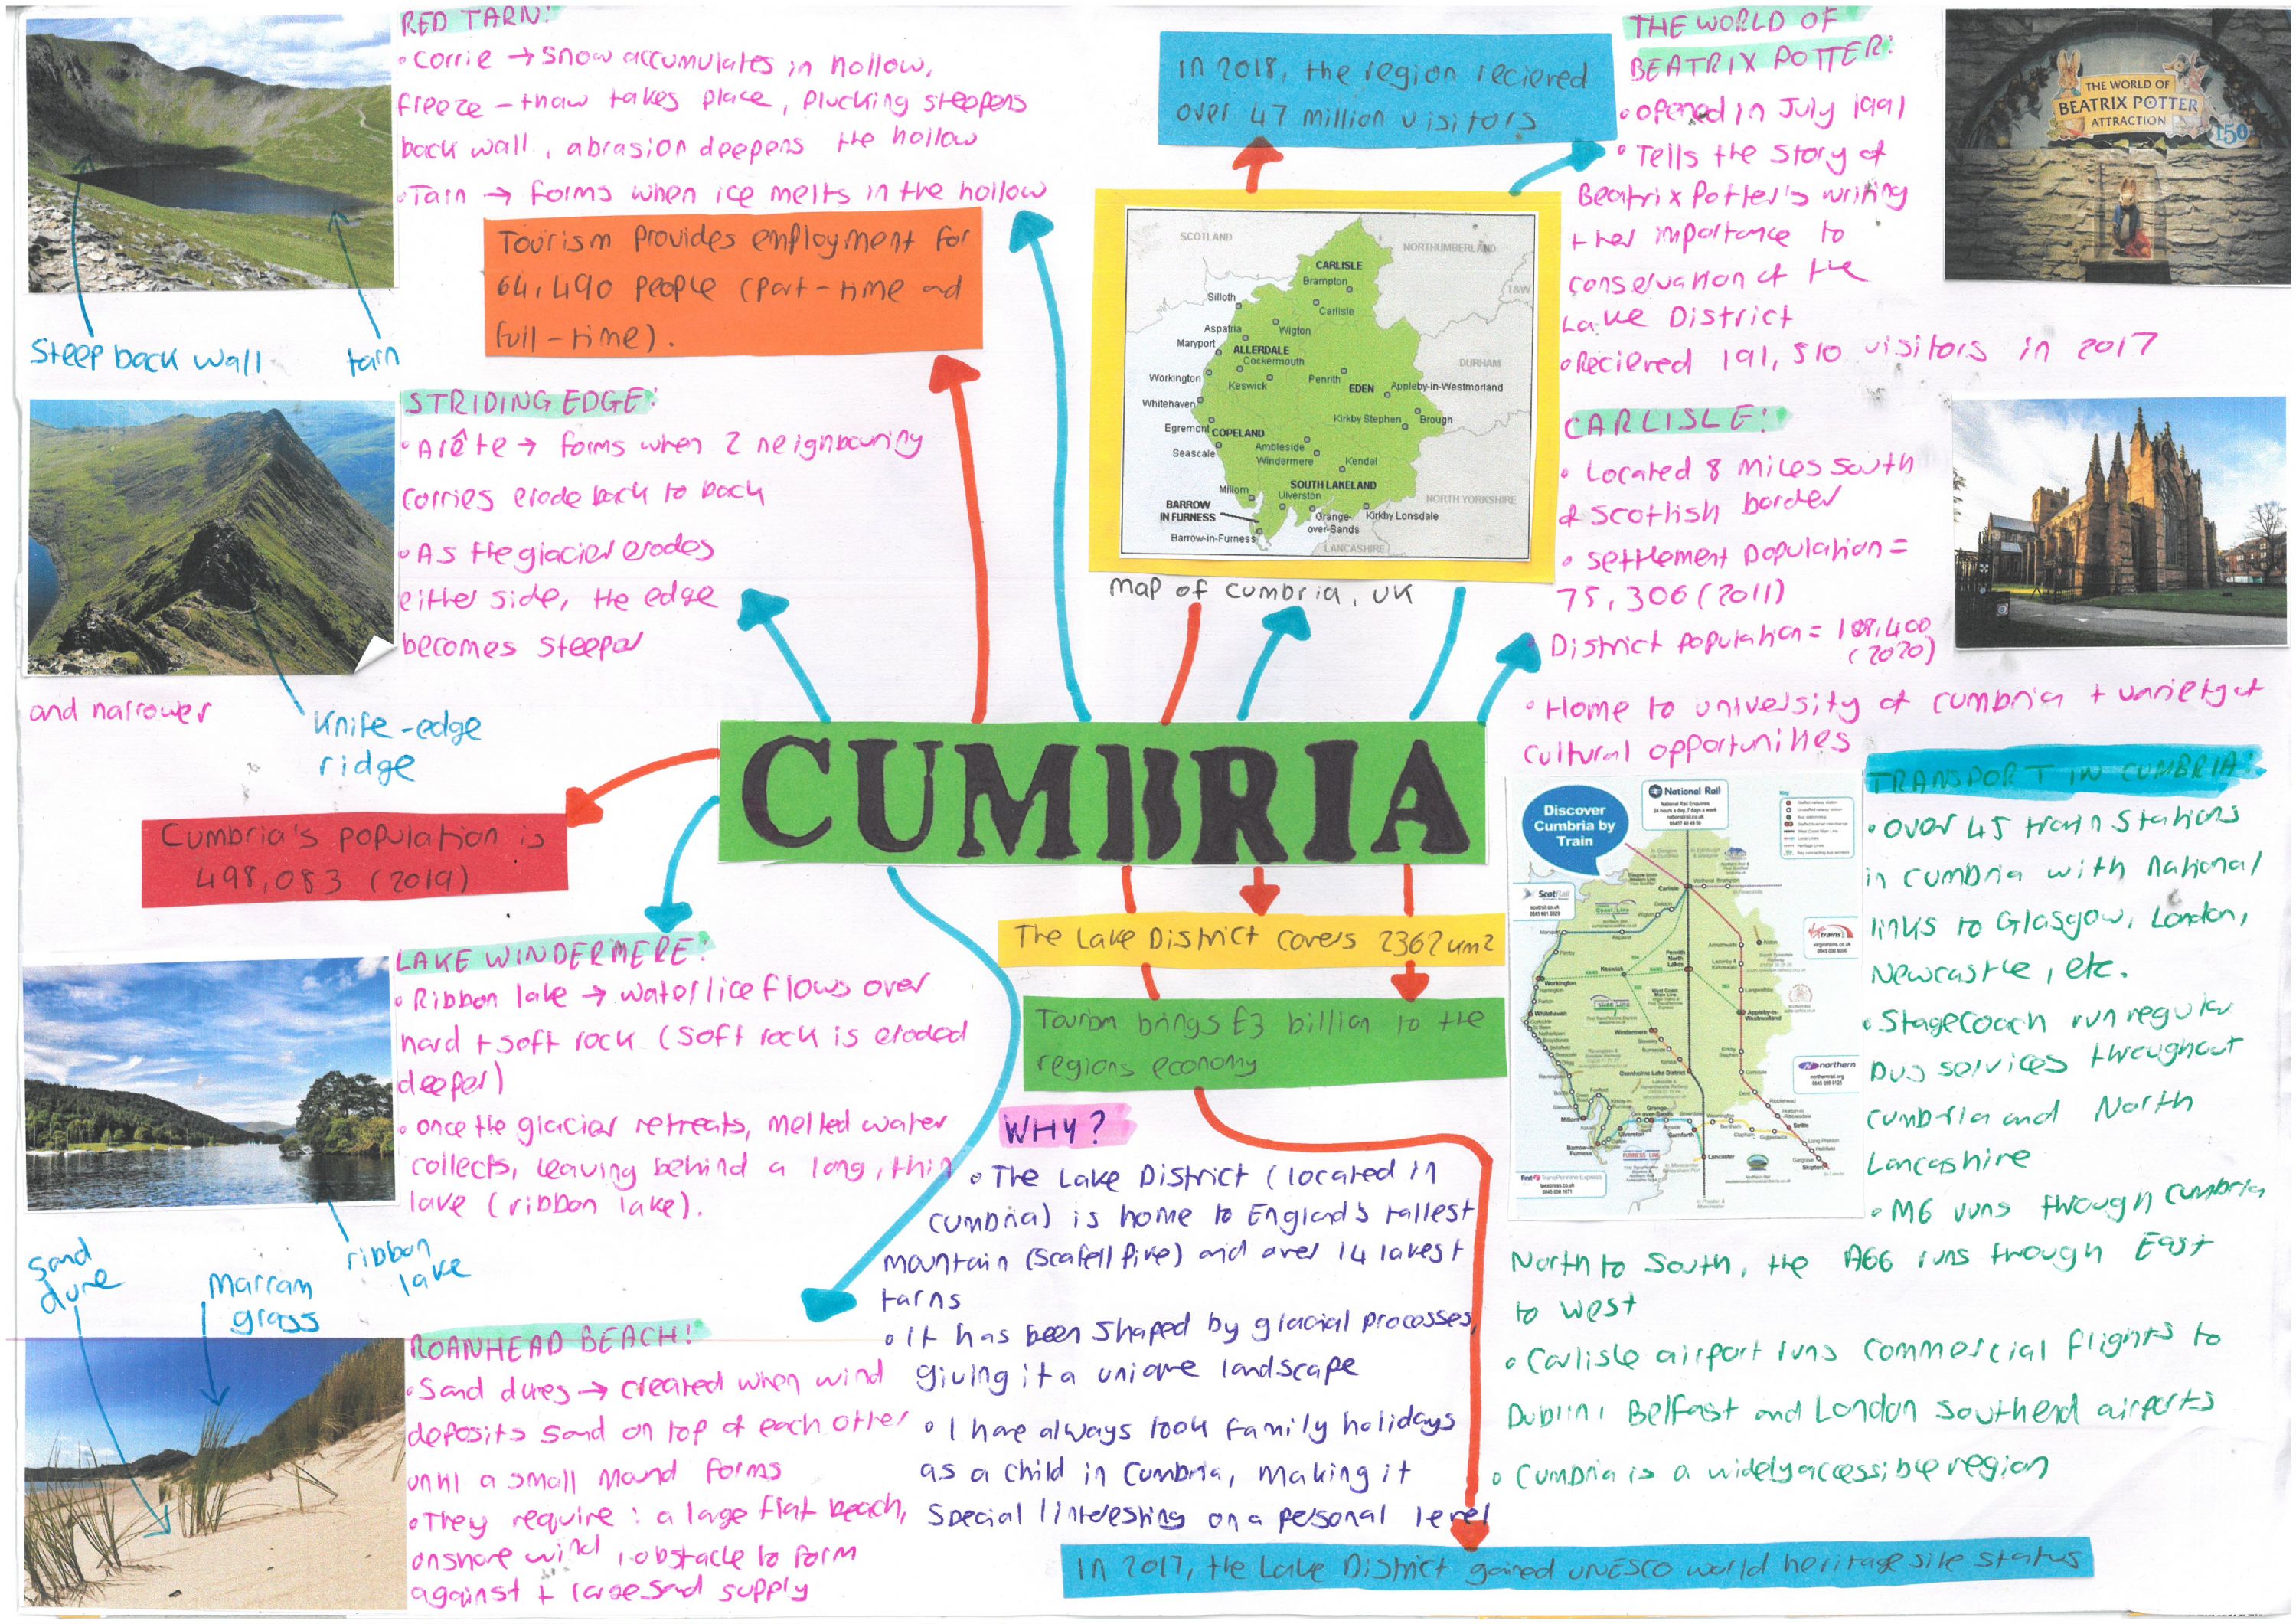 RED TARN:
• Corrie → snow accumulates in hollow,
freeze-thaw takes place, plucking steepens
back wall, abrasion deepens the hollow
• Tarn → forms when ice melts in the hollow
steep back wall
tarn
Tourism provides employment for
64,490 people (part-time and
full-time).
STRIDING EDGE:
• Arête → forms when 2 neighbouring
corries erode back to back
• As the glacier erodes
either side, the edge
becomes steeper
and narrower
knife-edge
ridge
Cumbria's population is
498,083 (2019)
LAKE WINDERMERE:
• Ribbon lake → water/ice flows over
hard + soft rock (soft rock is eroded
deeper)
• once the glacier retreats, melted water
collects, leaving behind a long, thin
lake (ribbon lake).
ribbon
lake
sand
dune
Marram
grass
ROANHEAD BEACH:
• Sand dunes → created when wind
deposits sand on top of each other
until a small mound forms
• They require: a large flat beach,
onshore wind, obstacle to form
against + large sand supply
In 2018, the region recieved
over 47 million visitors
SCOTLAND
NORTHUMBERLAND
T&W
DURHAM
NORTH YORKSHIRE
LANCASHIRE
CARLISLE
Brampton
Carlisle
Silloth
Wigton
Aspatria
Maryport
ALLERDALE
Cockermouth
Workington
Keswick
Penrith
EDEN
Appleby-in-Westmorland
Whitehaven
Kirkby Stephen
Brough
Egremont
COPELAND
Ambleside
Seascale
Windermere
Kendal
Millom
SOUTH LAKELAND
Ulverston
BARROW
IN FURNESS
Grange-
over-Sands
Kirkby Lonsdale
Barrow-in-Furness
Map of Cumbria, UK
CUMBRIA
The Lake District covers 2362km2
Tourism brings £3 billion to the
regions economy
WHY?
• The Lake District (located in
Cumbria) is home to England's tallest
mountain (Scafell Pike) and over 14 lakes +
tarns
• It has been shaped by glacial processes,
giving it a unique landscape
• I have always took family holidays
as a child in Cumbria, making it
special/interesting on a personal level
In 2017, the Lake District gained UNESCO world heritage site status
THE WORLD OF
BEATRIX POTTER:
• opened in July 1991
• Tells the story of
Beatrix Potter's writing
+ her importance to
conservation of the
Lake District
• Recieved 191,510 visitors in 2017
THE WORLD OF
BEATRIX POTTER
ATTRACTION
150
CARLISLE:
• Located 8 miles south
of Scottish border
• settlement population =
75,306 (2011)
• District population = 108,400
(2020)
• Home to university of Cumbria + variety of
cultural opportunities
Discover
Cumbria by
Train
National Rail
ScotRail
Virgin trains
northern
First TransPennine Express
Carlisle
Workington
Whitehaven
Keswick
Windermere
Oxenholme Lake District
Lancaster
Settle
Skipton
TRANSPORT IN CUMBRIA:
• Over 45 train stations
in Cumbria with national
links to Glasgow, London,
Newcastle, etc.
• Stagecoach run regular
bus services throughout
Cumbria and North
Lancashire
• M6 runs through Cumbria
North to South, the A66 runs through East
to West
• Carlisle airport runs commercial flights to
Dublin, Belfast and London southend airports
• Cumbria is a widely accessible region